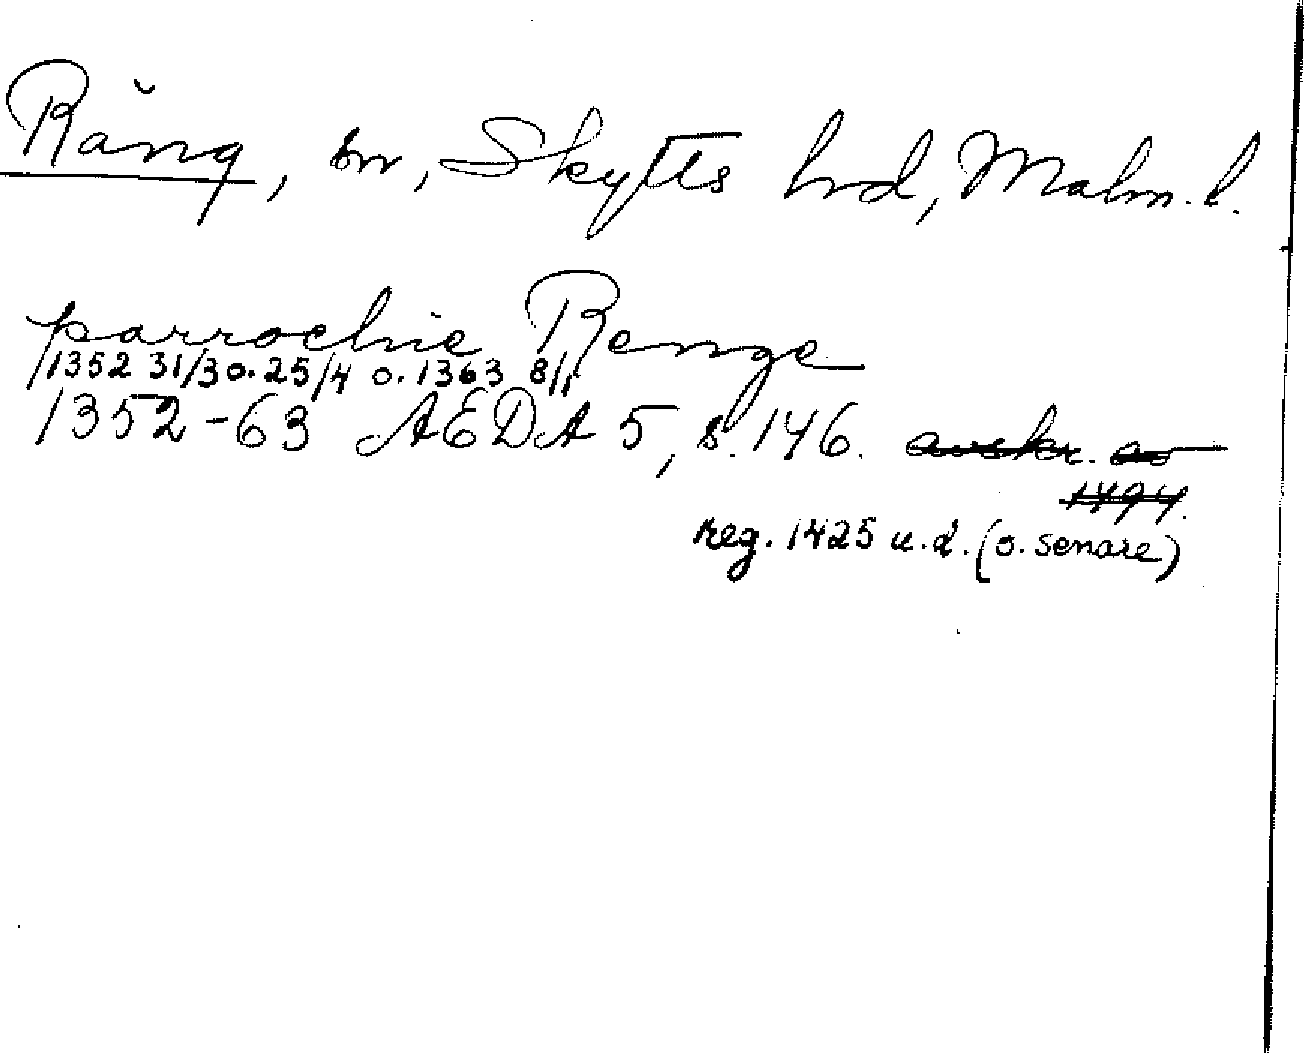 Räng, sn, Skytts hrd, Malm. l.
parrochie Renge
/1352 31/3 o. 25/4 o. 1363 8/1
1352-63 AEDA 5, s. 146. avskr. av
1494.
Reg. 1425 u.d. (o. senare)